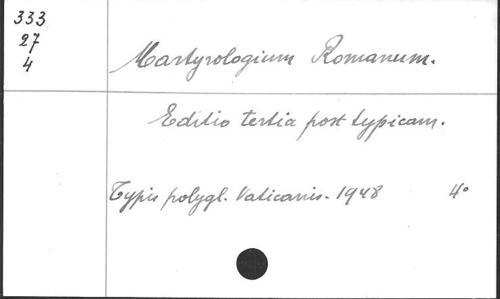 333
27
4
Martyrologium Romanum.
Editio tertia post typicam.
Typis polygl. Vaticanis. 1948 4°